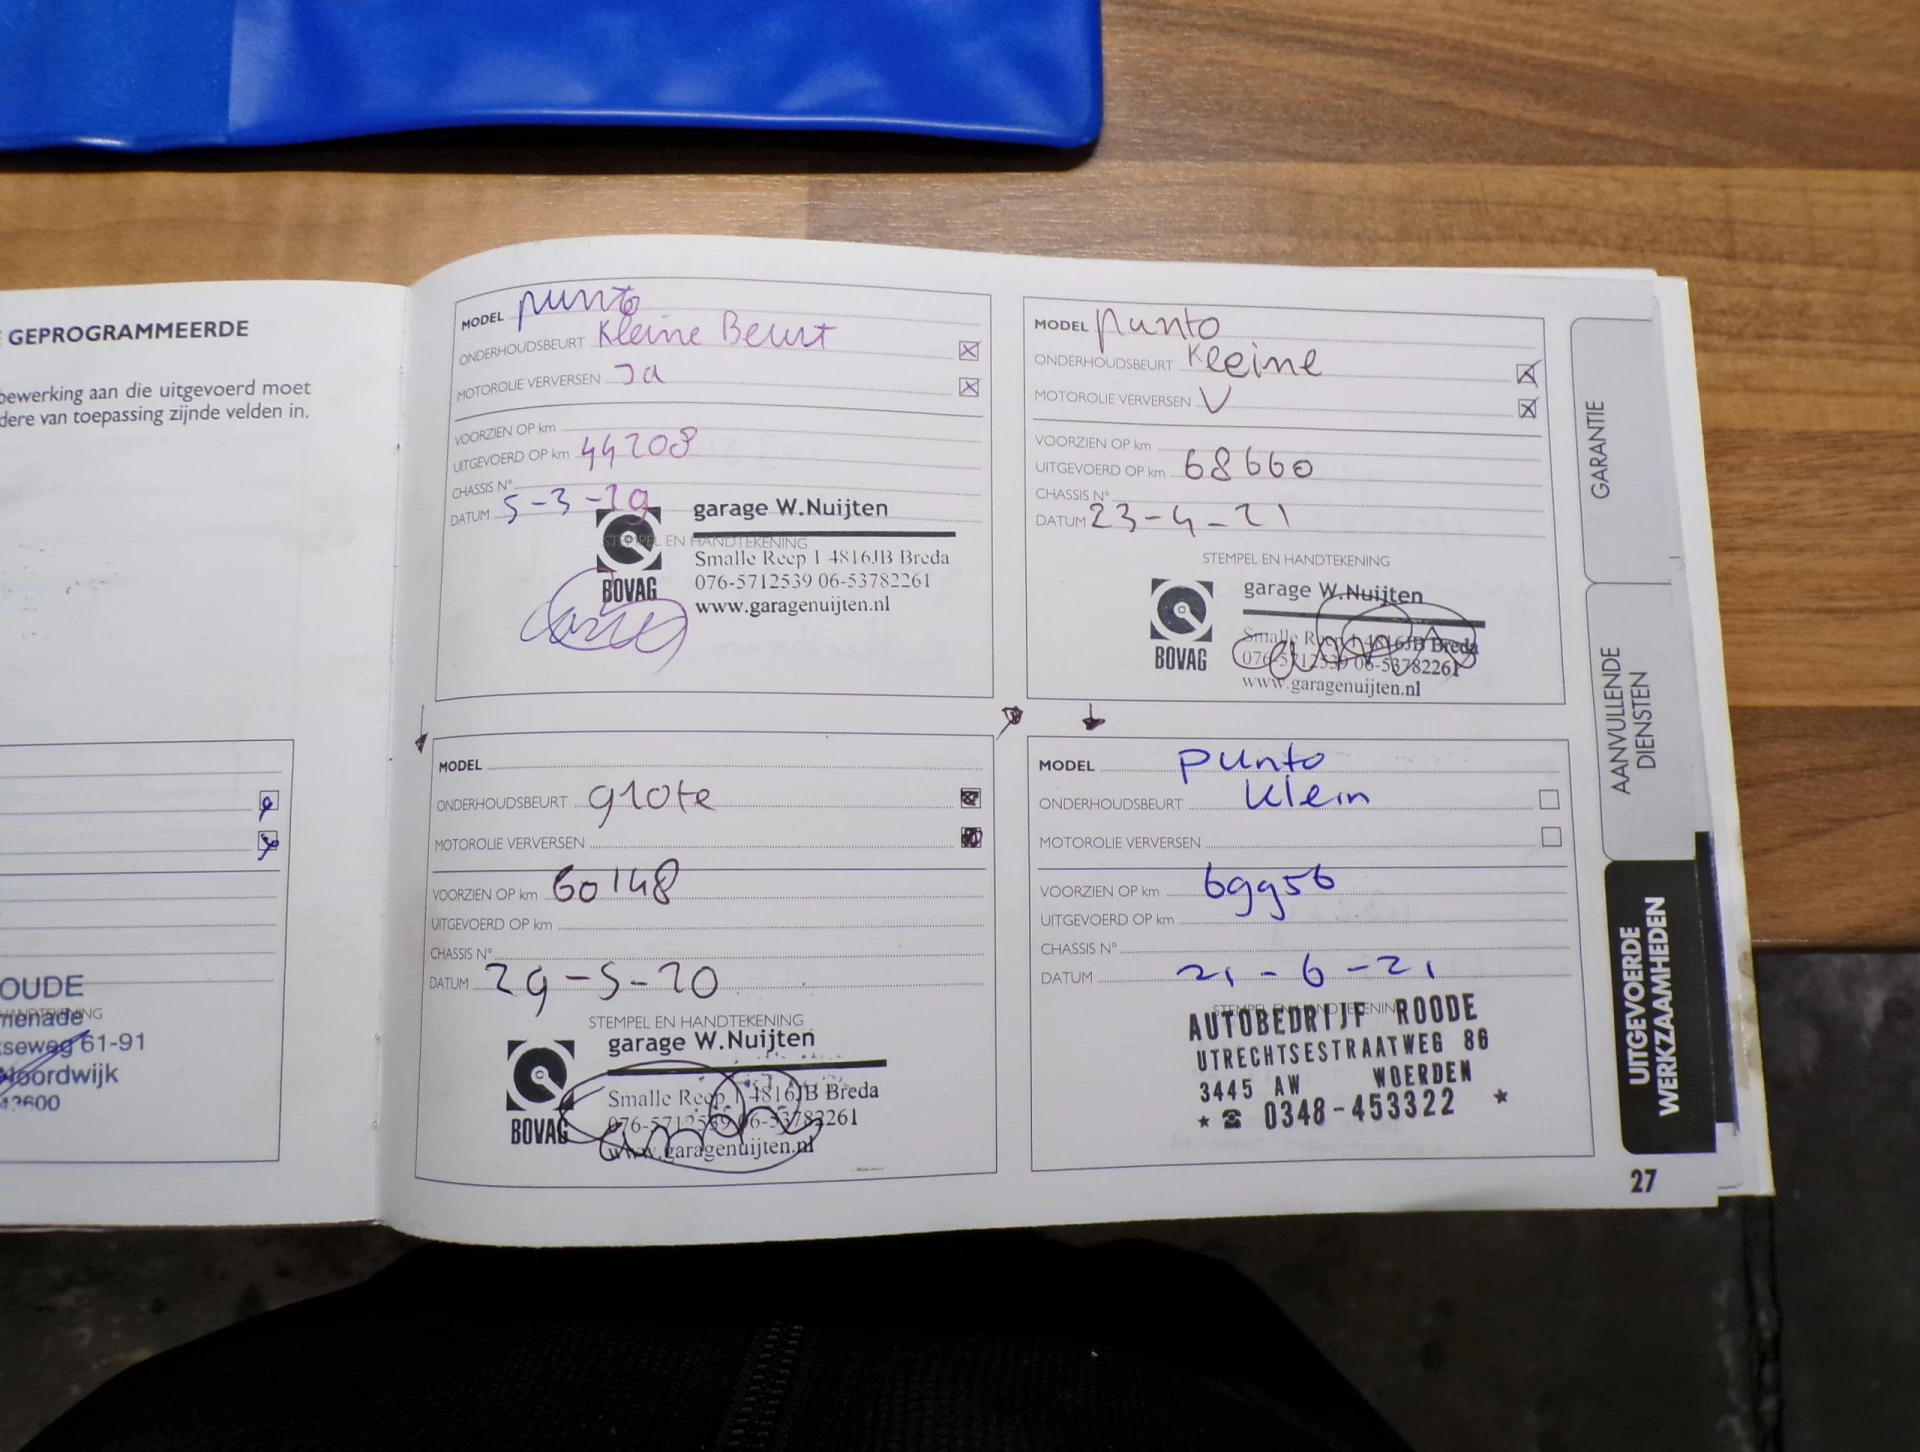 GEPROGRAMMEERDE
bewerking aan die uitgevoerd moet
dere van toepassing zijnde velden in.
OUDE
HANDTEKENING
menade
seweg 61-91
Noordwijk
MODEL punto
ONDERHOUDSBEURT Kleine Beurt
MOTOROLIE VERVERSEN Ja
VOORZIEN OP km
UITGEVOERD OP km 44208
CHASSIS N°
DATUM 5-3-19
STEMPEL EN HANDTEKENING
garage W.Nuijten
Smalle Reep 1 4816JB Breda
076-5712539 06-53782261
www.garagenuijten.nl
BOVAG
MODEL punto
ONDERHOUDSBEURT Kleine
MOTOROLIE VERVERSEN V
VOORZIEN OP km
UITGEVOERD OP km 68660
CHASSIS N°
DATUM 23-4-21
STEMPEL EN HANDTEKENING
garage W.Nuijten
Smalle Reep 1 4816JB Breda
076-5712539 06-53782261
www.garagenuijten.nl
BOVAG
MODEL
ONDERHOUDSBEURT grote
MOTOROLIE VERVERSEN
VOORZIEN OP km 60148
UITGEVOERD OP km
CHASSIS N°
DATUM 29-5-20
STEMPEL EN HANDTEKENING
garage W.Nuijten
Smalle Reep 1 4816JB Breda
076-5712539 06-53782261
www.garagenuijten.nl
BOVAG
MODEL punto
ONDERHOUDSBEURT klein
MOTOROLIE VERVERSEN
VOORZIEN OP km 69956
UITGEVOERD OP km
CHASSIS N°
DATUM 21-6-21
STEMPEL EN HANDTEKENING
AUTOBEDRIJF ROODE
UTRECHTSESTRAATWEG 86
3445 AW WOERDEN
★ ☎ 0348-453322 ★
GARANTIE
AANVULLENDE
DIENSTEN
UITGEVOERDE
WERKZAAMHEDEN
27